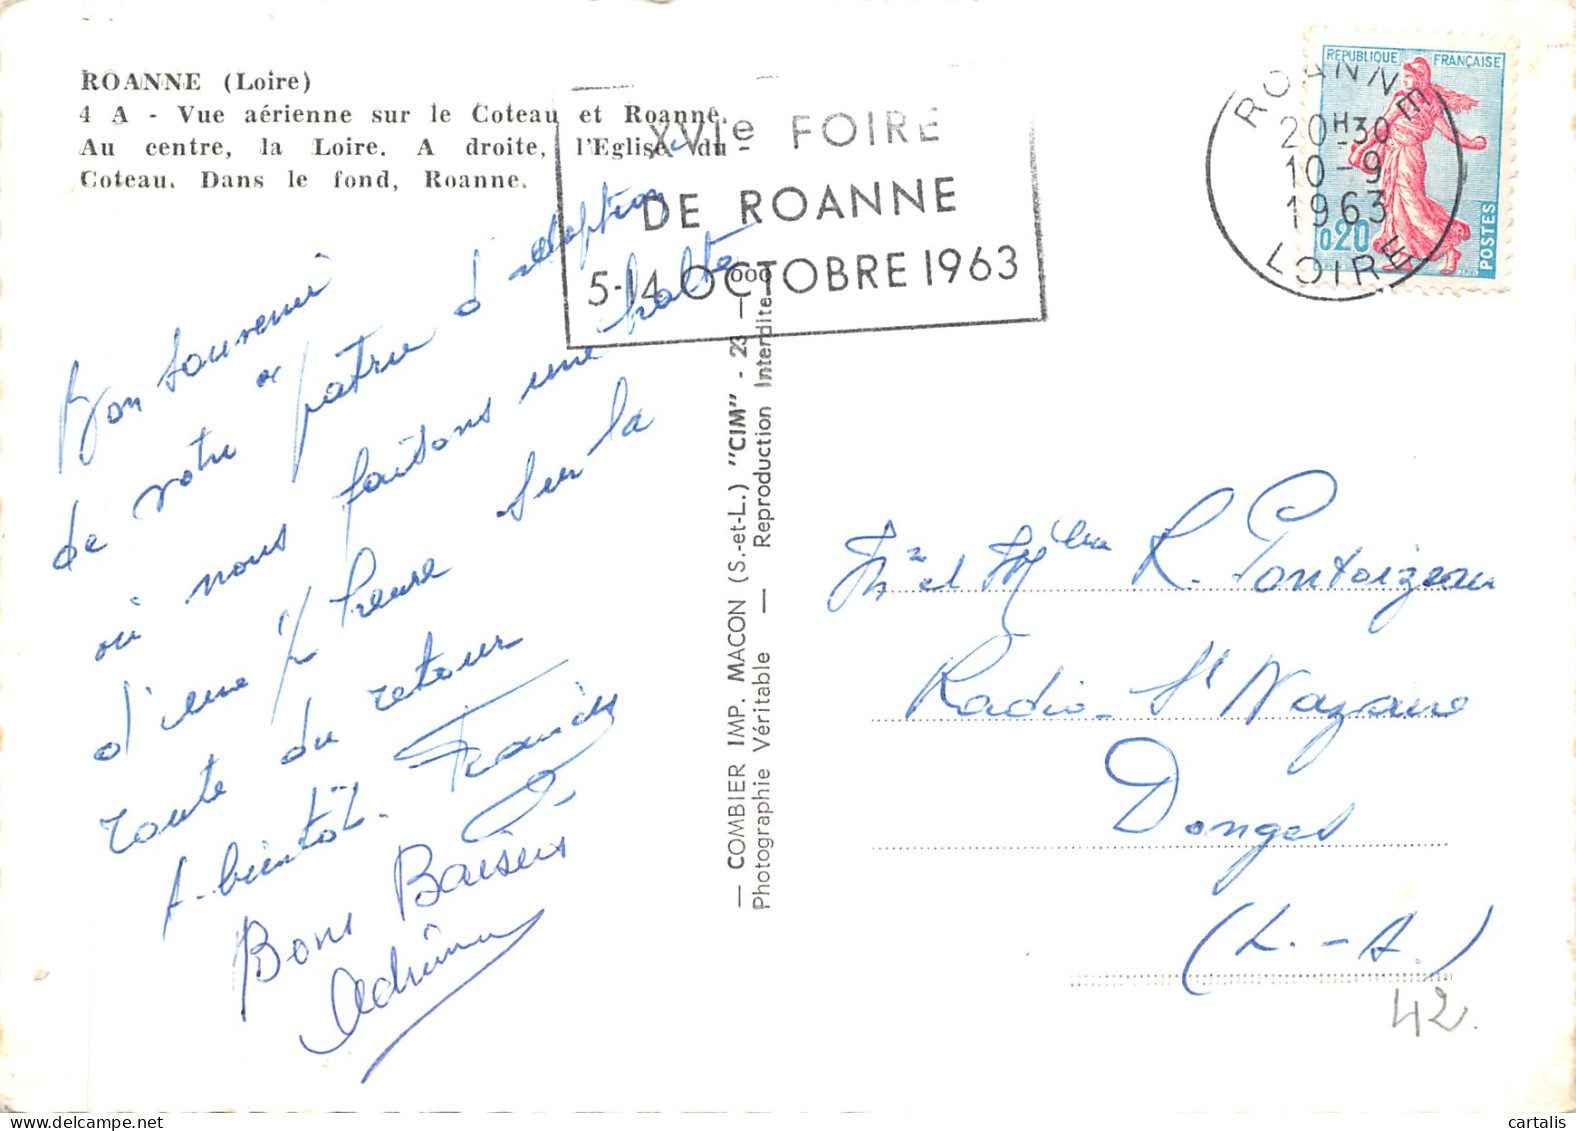 ROANNE (Loire)
4 A - Vue aérienne sur le Coteau et Roanne.
Au centre, la Loire. A droite, l'Eglise du
Coteau. Dans le fond, Roanne.
XVIe FOIRE
DE ROANNE
5-14 OCTOBRE 1963
ROANNE
20H30
10-9
1963
LOIRE
REPUBLIQUE FRANÇAISE
0,20
POSTES
Bon souvenir
de notre "patrie d'adoption
où nous faisons une halte
d'une 1/2 heure sur la
route du retour
A bientôt. Francis
Bons Baisers
— COMBIER IMP. MACON (S.-et-L.) "CIM" - 23 —
Photographie Véritable — Reproduction Interdite
Mr et Mme R. Pontoizeau
Radio-St Nazaire
Donges
(L.-A.)
42
cartalis